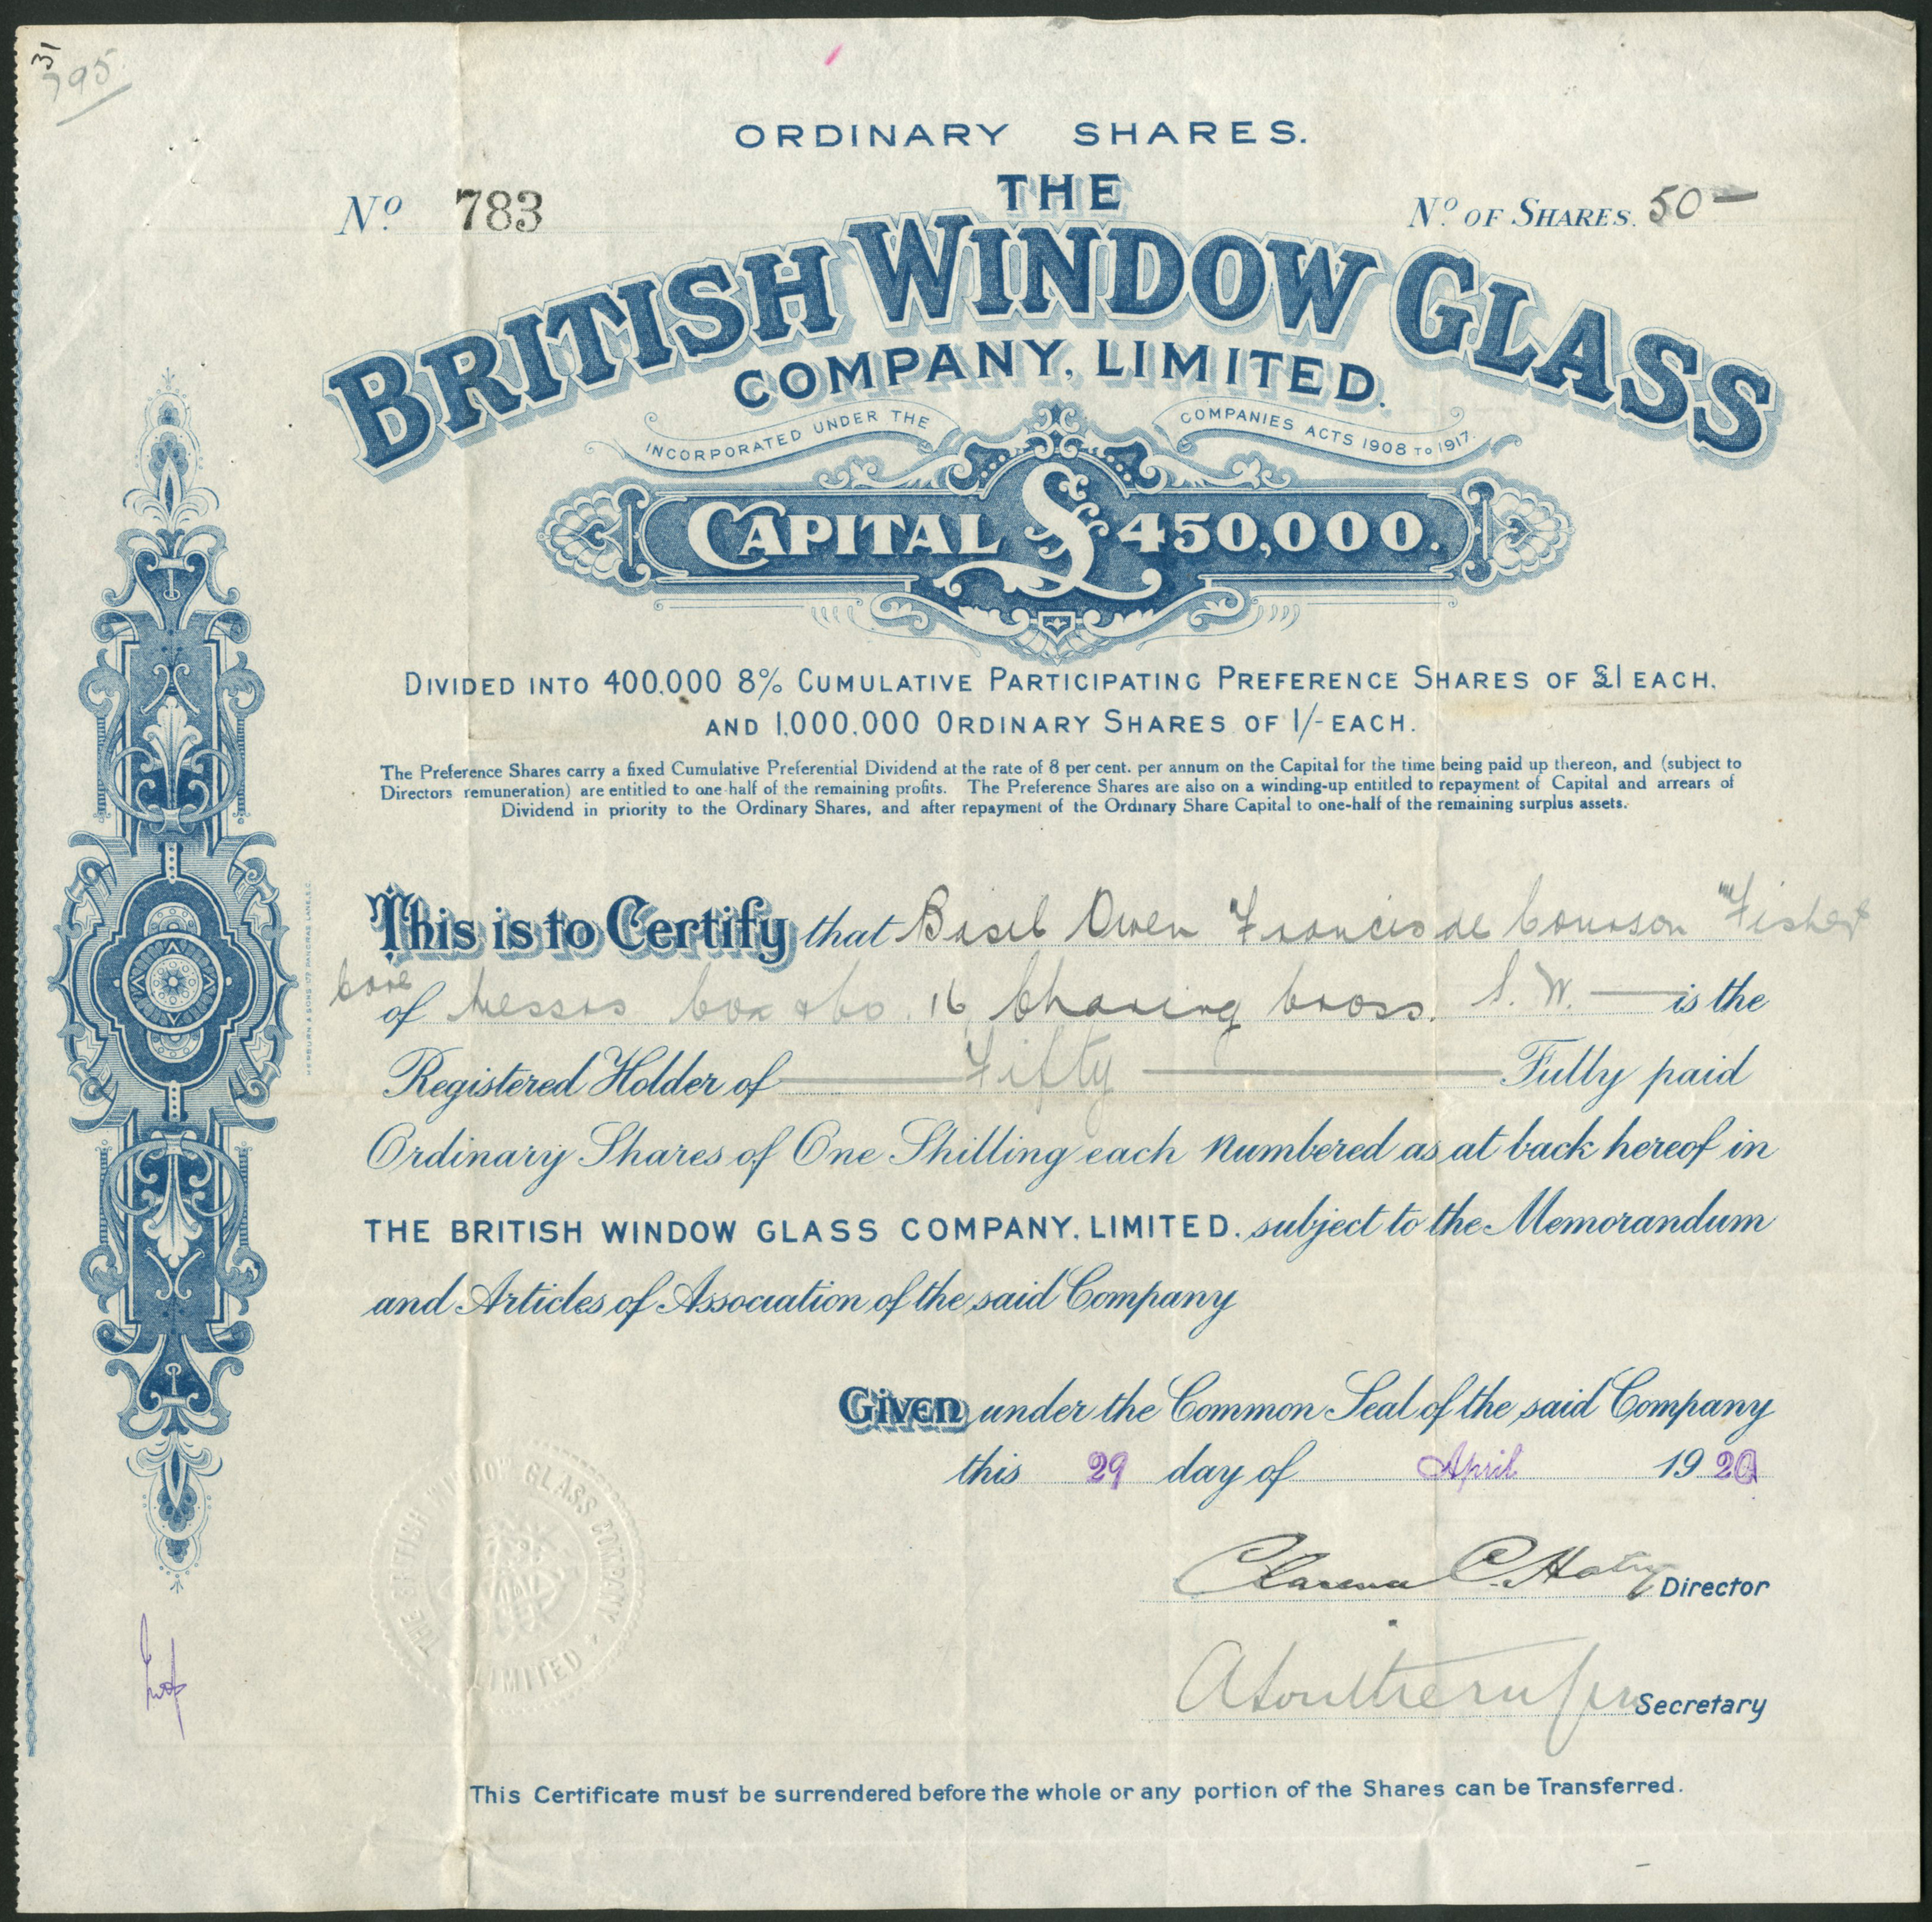 31
795
ORDINARY SHARES.
No. 783
No. OF SHARES. 50 —
THE
BRITISH WINDOW GLASS
COMPANY, LIMITED.
INCORPORATED UNDER THE COMPANIES ACTS 1908 TO 1917.
CAPITAL £450,000.
DIVIDED INTO 400,000 8% CUMULATIVE PARTICIPATING PREFERENCE SHARES OF £1 EACH.
AND 1,000,000 ORDINARY SHARES OF 1/- EACH.
The Preference Shares carry a fixed Cumulative Preferential Dividend at the rate of 8 per cent. per annum on the Capital for the time being paid up thereon, and (subject to
Directors remuneration) are entitled to one-half of the remaining profits. The Preference Shares are also on a winding-up entitled to repayment of Capital and arrears of
Dividend in priority to the Ordinary Shares, and after repayment of the Ordinary Share Capital to one-half of the remaining surplus assets.
This is to Certify that Basil Owen Francis de Fisher
care
of Messrs Cox & Co. 16, Charing Cross. S. W. — is the
Registered Holder of — Fifty — Fully paid
Ordinary Shares of One Shilling each numbered as at back hereof in
THE BRITISH WINDOW GLASS COMPANY, LIMITED. subject to the Memorandum
and Articles of Association of the said Company
Given under the Common Seal of the said Company
this 29 day of April 1920
Clarence C. Hatry Director
A Southern Secretary
THE BRITISH WINDOW GLASS COMPANY LIMITED
This Certificate must be surrendered before the whole or any portion of the Shares can be Transferred.